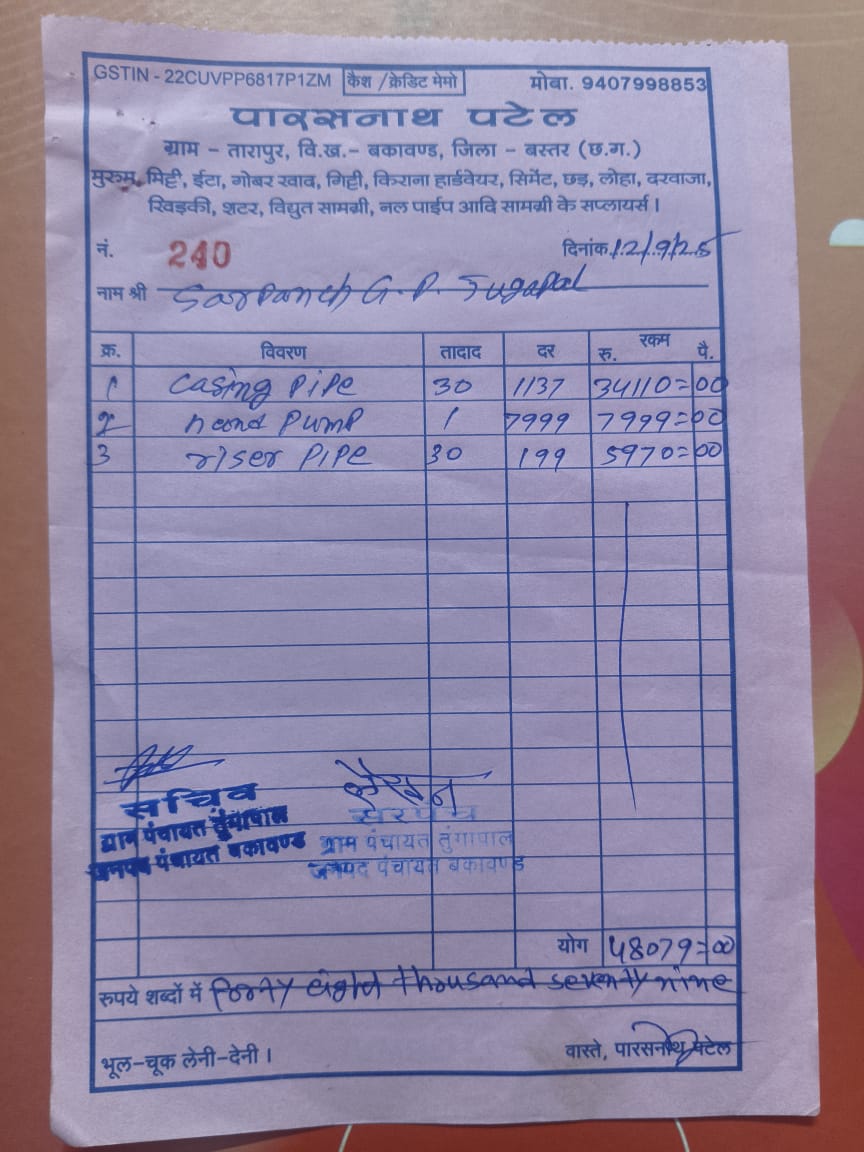 GSTIN - 22CUVPP6817P1ZM कैश / क्रेडिट मेमो मोबा. 9407998853
पारसनाथ पटेल
ग्राम - तारापुर, वि.ख.- बकावण्ड, जिला - बस्तर (छ.ग.)
मुरुम, मिट्टी, ईटा, गोबर खाद, गिट्टी, किराना हार्डवेयर, सिमेंट, छड़, लोहा, दरवाजा,
खिड़की, शटर, विद्युत सामग्री, नल पाईप आदि सामग्री के सप्लायर्स।
नं. 240 दिनांक 12/9/25
नाम श्री Sarpanch G.P. Tugapal
क्र. विवरण तादाद दर रकम
रु. पै.
1 casing pipe 30 1137 34110=00
2 hand pump 1 7999 7999=00
3 riser pipe 30 199 5970=00
सचिव
ग्राम पंचायत तुंगापाल
जनपद पंचायत बकावण्ड
सरपंच
ग्राम पंचायत तुंगापाल
जनपद पंचायत बकावण्ड
योग 48079=00
रुपये शब्दों में forty eight thousand seventy nine
भूल-चूक लेनी-देनी। वास्ते, पारसनाथ पटेल